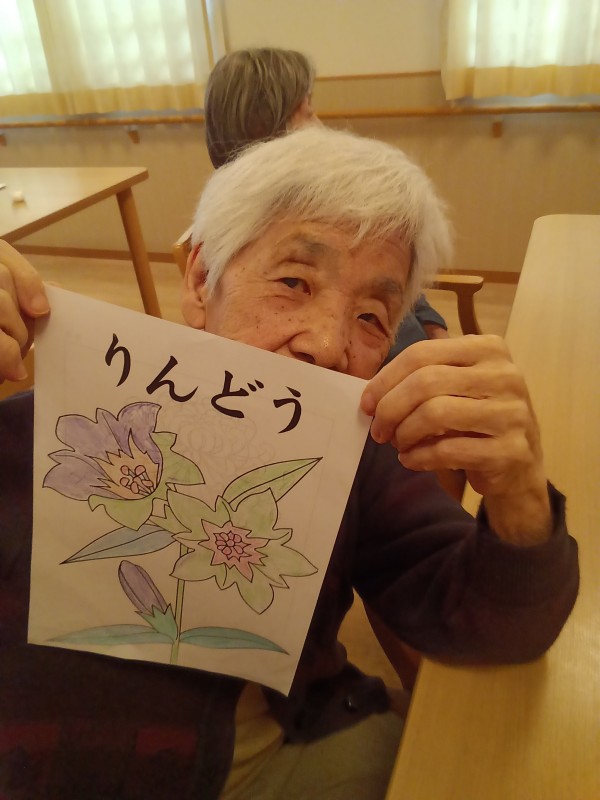 りんどう